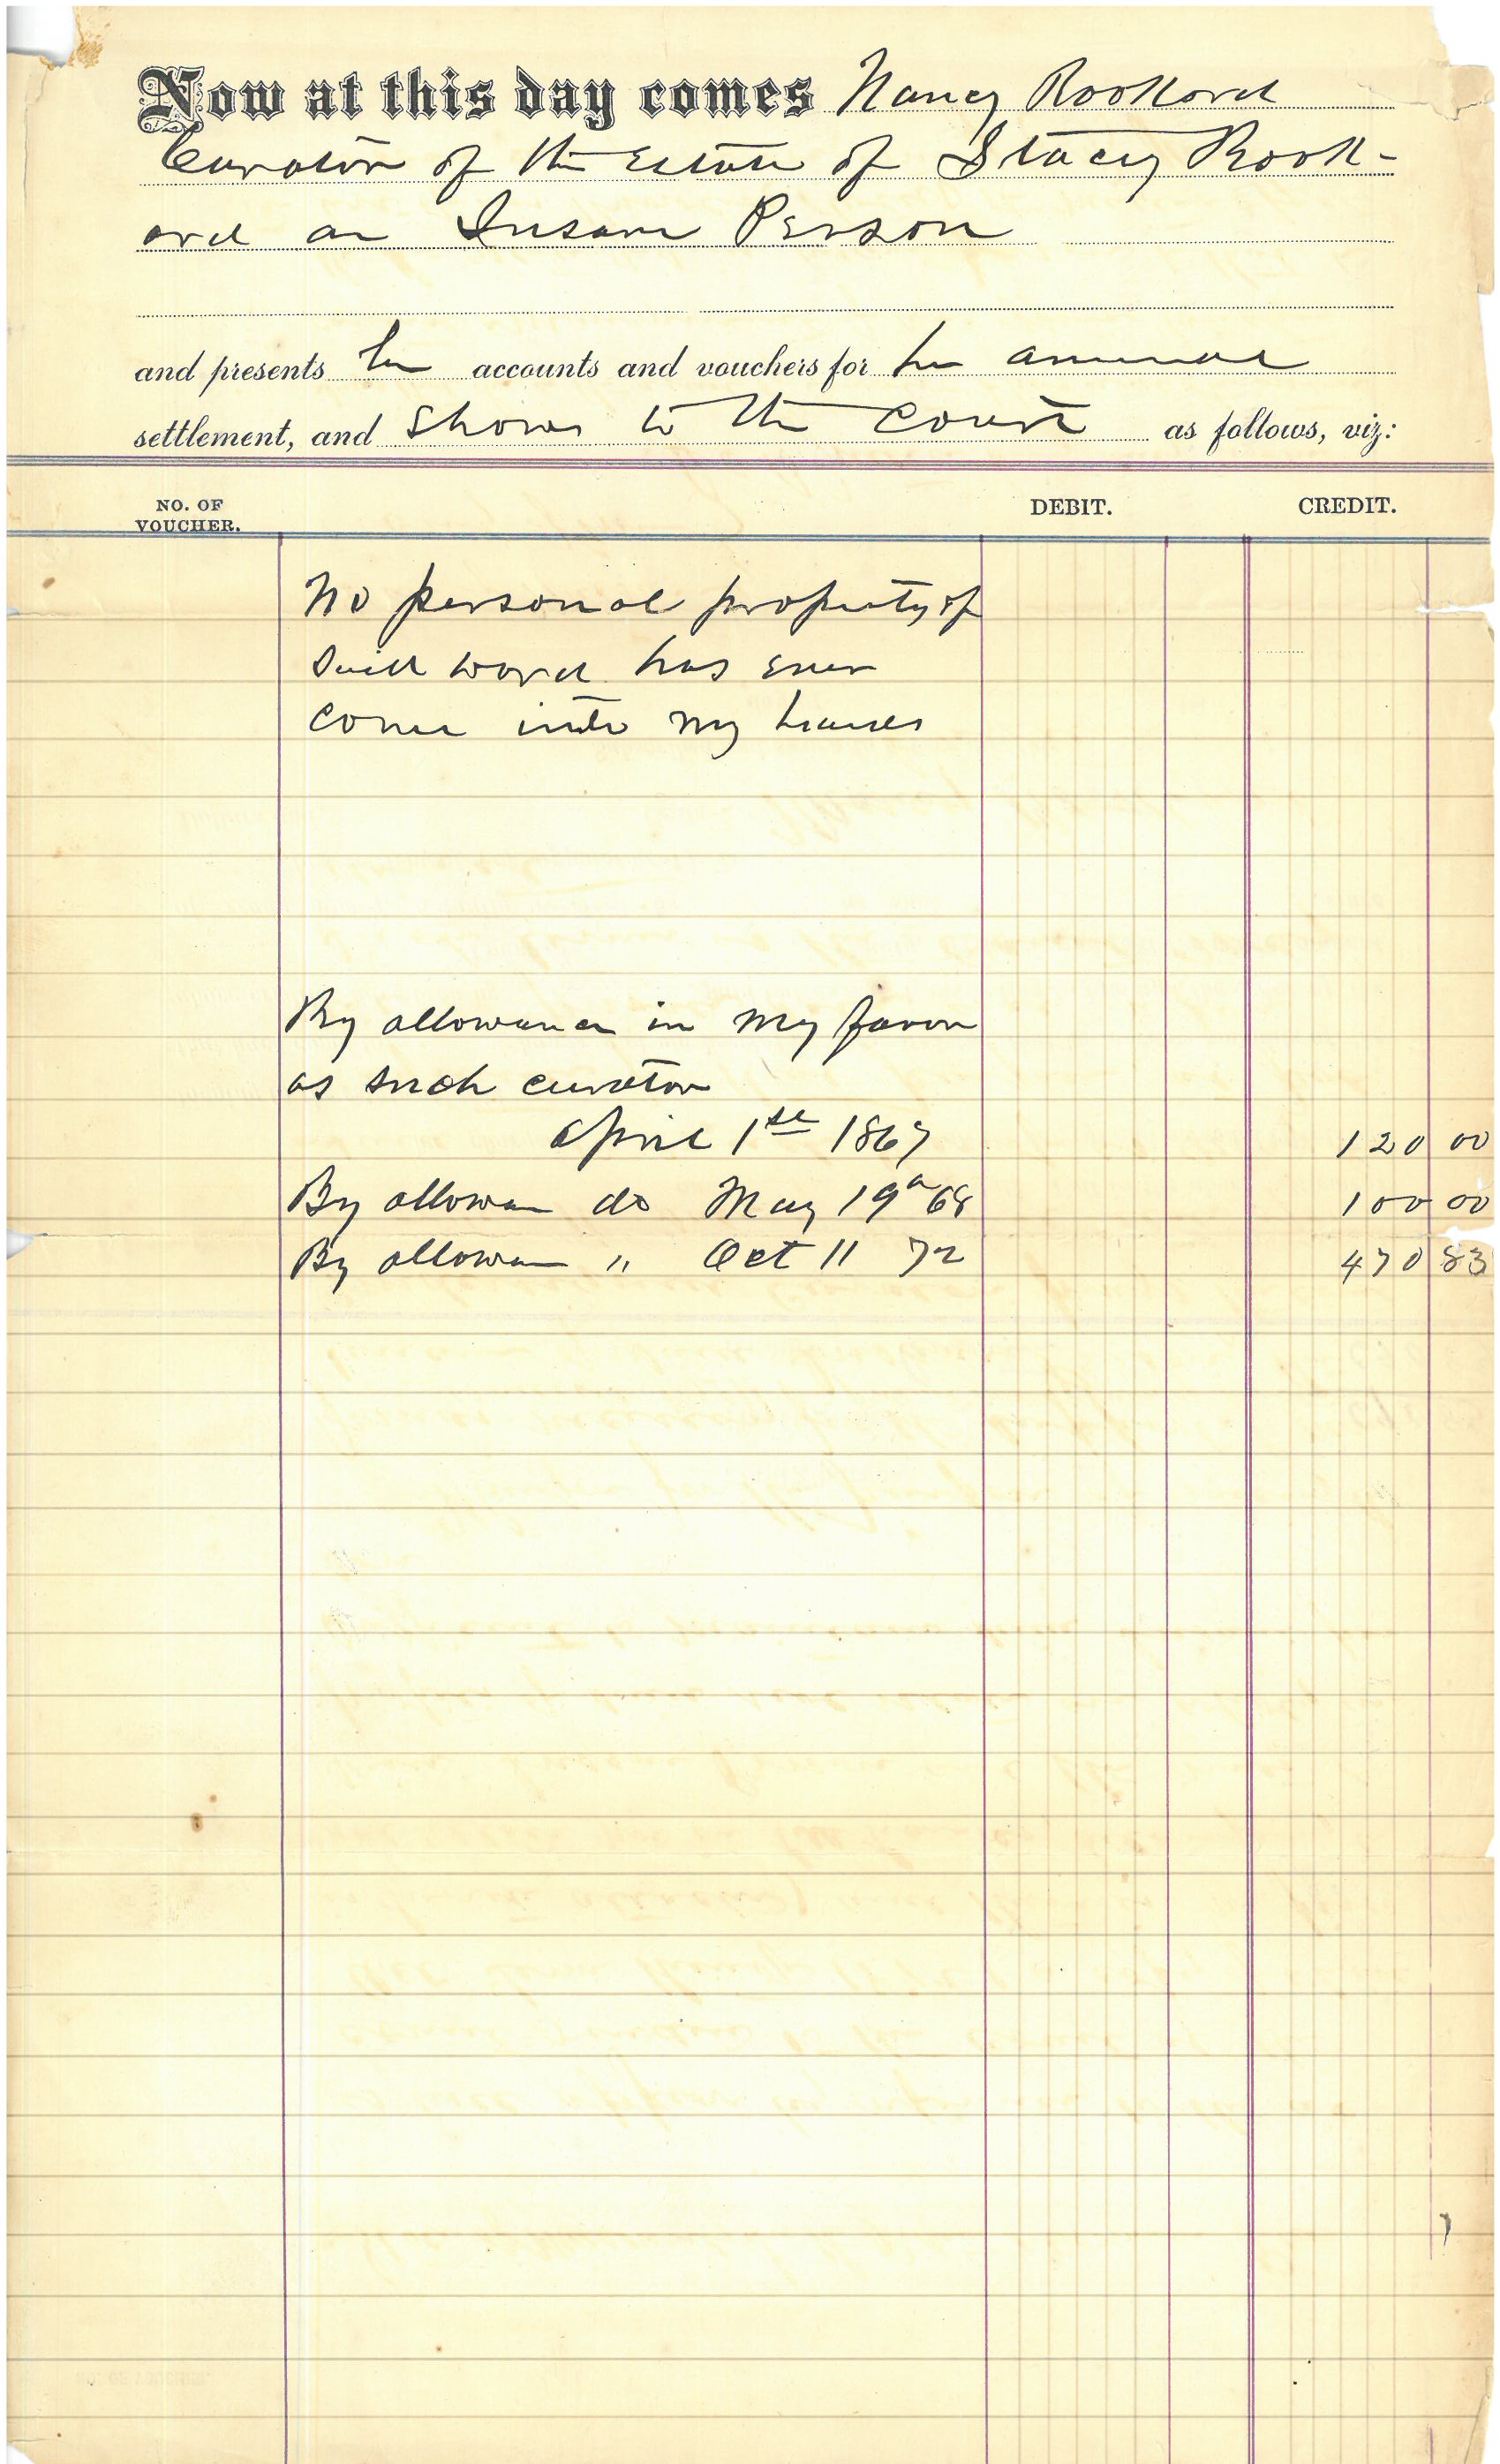 Now at this day comes Nancy Rookard
Curator of the Estate of Stacey Rook-
ard an Insane Person
and presents her accounts and vouchers for her annual
settlement, and shows to the Court as follows, viz:
NO. OF VOUCHER. DEBIT. CREDIT.
No personal property of
said ward has ever
come into my hands
By allowance in my favor
as such curator
April 1st 1867 120 00
By allowan do May 19th 68 100 00
By allowan " Oct 11 72 470 83